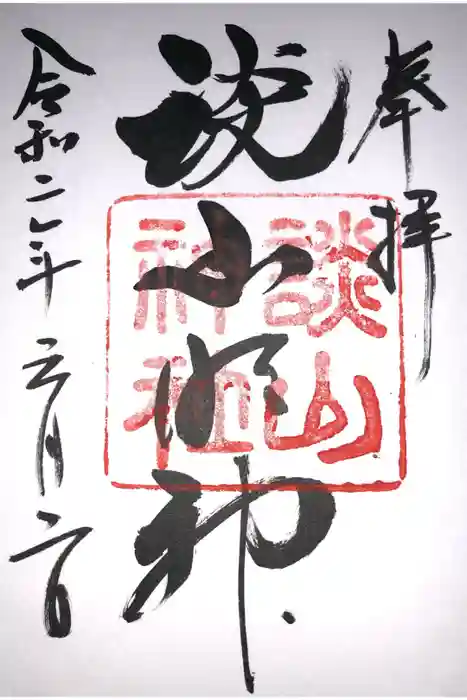 奉拝
談山明神
談山
神社
令和二年 三月二日